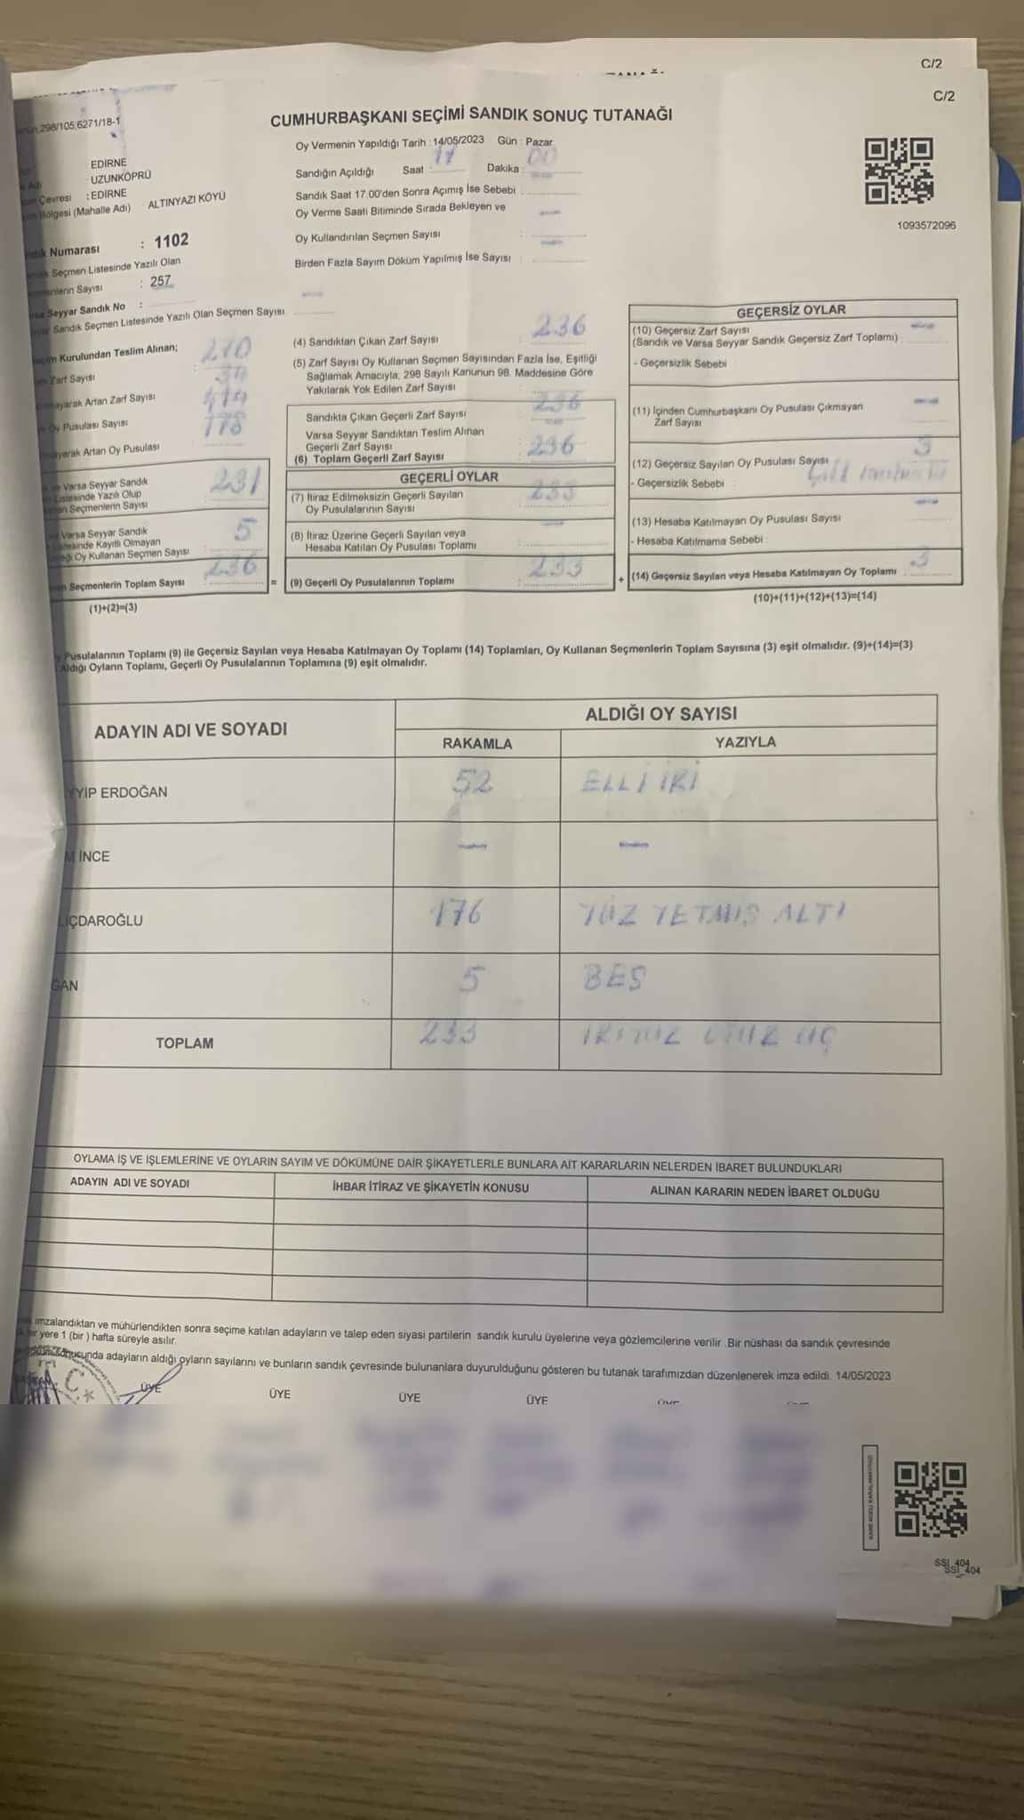 C/2
C/2
298/105,6271/18-1
CUMHURBAŞKANI SEÇİMİ SANDIK SONUÇ TUTANAĞI
Oy Vermenin Yapıldığı Tarih : 14/05/2023 Gün : Pazar
Sandığın Açıldığı Saat 17 Dakika 00
Sandık Saat 17.00'den Sonra Açımış İse Sebebi
Oy Verme Saati Bitiminde Sırada Bekleyen ve
Oy Kullandırılan Seçmen Sayısı
Birden Fazla Sayım Döküm Yapılmış İse Sayısı
1093572096
EDİRNE
UZUNKÖPRÜ
Çevresi : EDİRNE
Bölgesi (Mahalle Adı) ALTINYAZI KÖYÜ
Numarası : 1102
Seçmen Listesinde Yazılı Olan
Sayısı : 257
Seyyar Sandık No :
Sandık Seçmen Listesinde Yazılı Olan Seçmen Sayısı
Kurulundan Teslim Alınan;
Zarf Sayısı 270
Artan Zarf Sayısı 34
Oy Pusulası Sayısı
Artan Oy Pusulası 178
Varsa Seyyar Sandık
Listesinde Yazılı Olup
Seçmenlerin Sayısı 231
Varsa Seyyar Sandık
Kayıtlı Olmayan
Oy Kullanan Seçmen Sayısı 5
Seçmenlerin Toplam Sayısı 236
(1)+(2)=(3)
=
(4) Sandıktan Çıkan Zarf Sayısı 236
(5) Zarf Sayısı Oy Kullanan Seçmen Sayısından Fazla İse, Eşitliği
Sağlamak Amacıyla, 298 Sayılı Kanunun 98. Maddesine Göre
Yakılarak Yok Edilen Zarf Sayısı
Sandıkta Çıkan Geçerli Zarf Sayısı 236
Varsa Seyyar Sandıktan Teslim Alınan
Geçerli Zarf Sayısı
(6) Toplam Geçerli Zarf Sayısı 236
GEÇERLİ OYLAR
(7) İtiraz Edilmeksizin Geçerli Sayılan
Oy Pusulalarının Sayısı 233
(8) İtiraz Üzerine Geçerli Sayılan veya
Hesaba Katılan Oy Pusulası Toplamı
(9) Geçerli Oy Pusulalarının Toplamı 233
+
GEÇERSİZ OYLAR
(10) Geçersiz Zarf Sayısı
(Sandık ve Varsa Seyyar Sandık Geçersiz Zarf Toplamı)
- Geçersizlik Sebebi
(11) İçinden Cumhurbaşkanı Oy Pusulası Çıkmayan
Zarf Sayısı
(12) Geçersiz Sayılan Oy Pusulası Sayısı 3
- Geçersizlik Sebebi
(13) Hesaba Katılmayan Oy Pusulası Sayısı
- Hesaba Katılmama Sebebi
(14) Geçersiz Sayılan veya Hesaba Katılmayan Oy Toplamı 3
(10)+(11)+(12)+(13)=(14)
Pusulalarının Toplamı (9) ile Geçersiz Sayılan veya Hesaba Katılmayan Oy Toplamı (14) Toplamları, Oy Kullanan Seçmenlerin Toplam Sayısına (3) eşit olmalıdır. (9)+(14)=(3)
Aldığı Oyların Toplamı, Geçerli Oy Pusulalarının Toplamına (9) eşit olmalıdır.
ADAYIN ADI VE SOYADI
ALDIĞI OY SAYISI
RAKAMLA YAZIYLA
YYİP ERDOĞAN 52 ELLİ İKİ
M İNCE
IÇDAROĞLU 176 YÜZ YETMİŞ ALTI
ĞAN 5 BEŞ
TOPLAM 233 İKİYÜZ OTUZ ÜÇ
OYLAMA İŞ VE İŞLEMLERİNE VE OYLARIN SAYIM VE DÖKÜMÜNE DAİR ŞİKAYETLERLE BUNLARA AİT KARARLARIN NELERDEN İBARET BULUNDUKLARI
ADAYIN ADI VE SOYADI İHBAR İTİRAZ VE ŞİKAYETİN KONUSU ALINAN KARARIN NEDEN İBARET OLDUĞU
imzalandıktan ve mühürlendikten sonra seçime katılan adayların ve talep eden siyasi partilerin sandık kurulu üyelerine veya gözlemcilerine verilir. Bir nüshası da sandık çevresinde
yere 1 (bir) hafta süreyle asılır.
sonucunda adayların aldığı oyların sayılarını ve bunların sandık çevresinde bulunanlara duyurulduğunu gösteren bu tutanak tarafımızdan düzenlenerek imza edildi. 14/05/2023
T.C.
ÜYE ÜYE ÜYE ÜYE
SSI_404
SSI_404